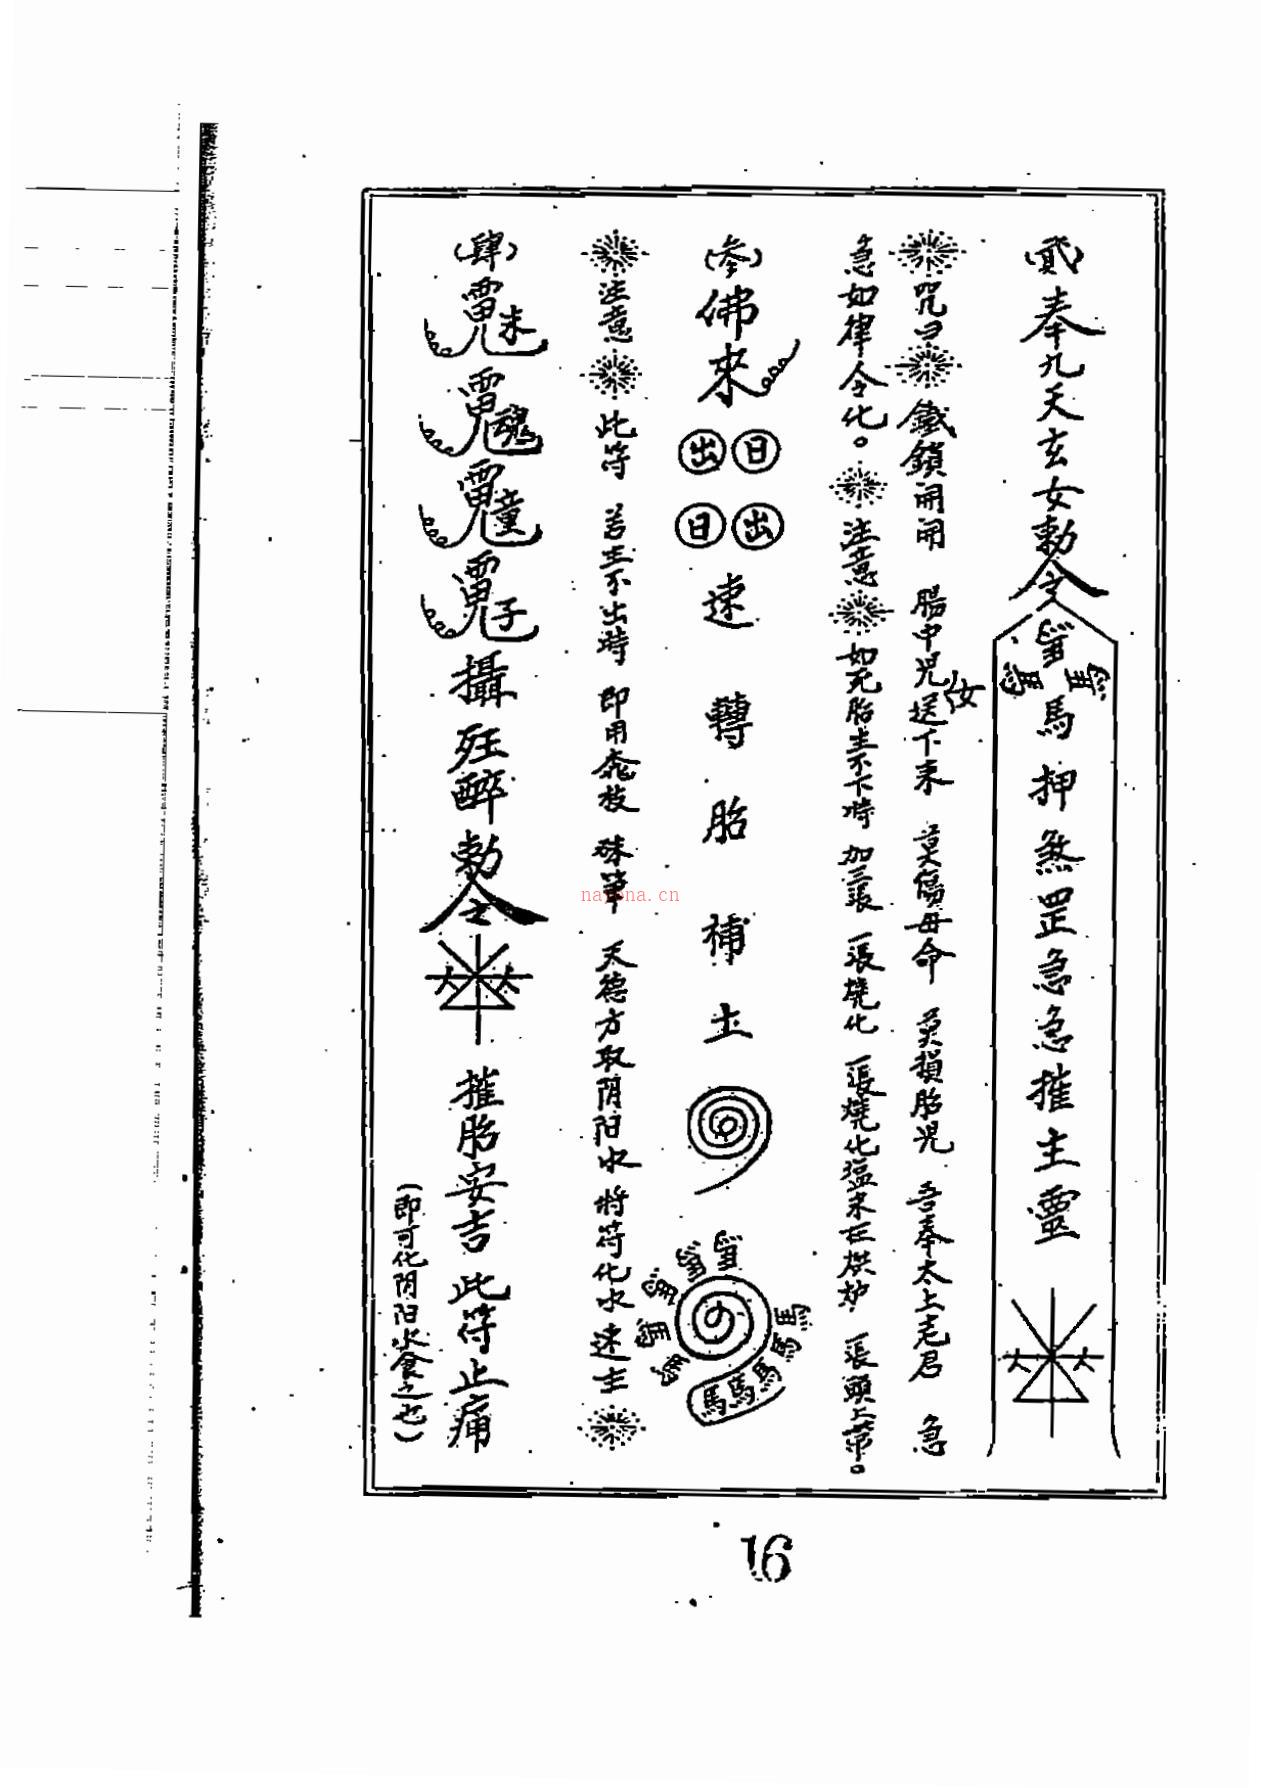 (貳) 奉九天玄女勅令 馬押煞罡急急摧生靈
咒曰 鐵鎖開開 腸中児送下来 莫傷母命 莫損胎児 吾奉太上老君 急
女
急如律令化。 注意 如死胎生不下時 加三張 一張燒化 一張燒化塩来在烘炉 一張頭上帶。
(叁) 佛來 日出 出日 速轉胎補土
馬馬馬馬馬馬
注意 此符 若生不出時 即用 枝 硃筆 天德方取阴阳水 将符化水速生
(肆) 攝 醉勅令 摧胎安吉 此符止痛
(即可化阴阳水食之也)
nayona.cn
16